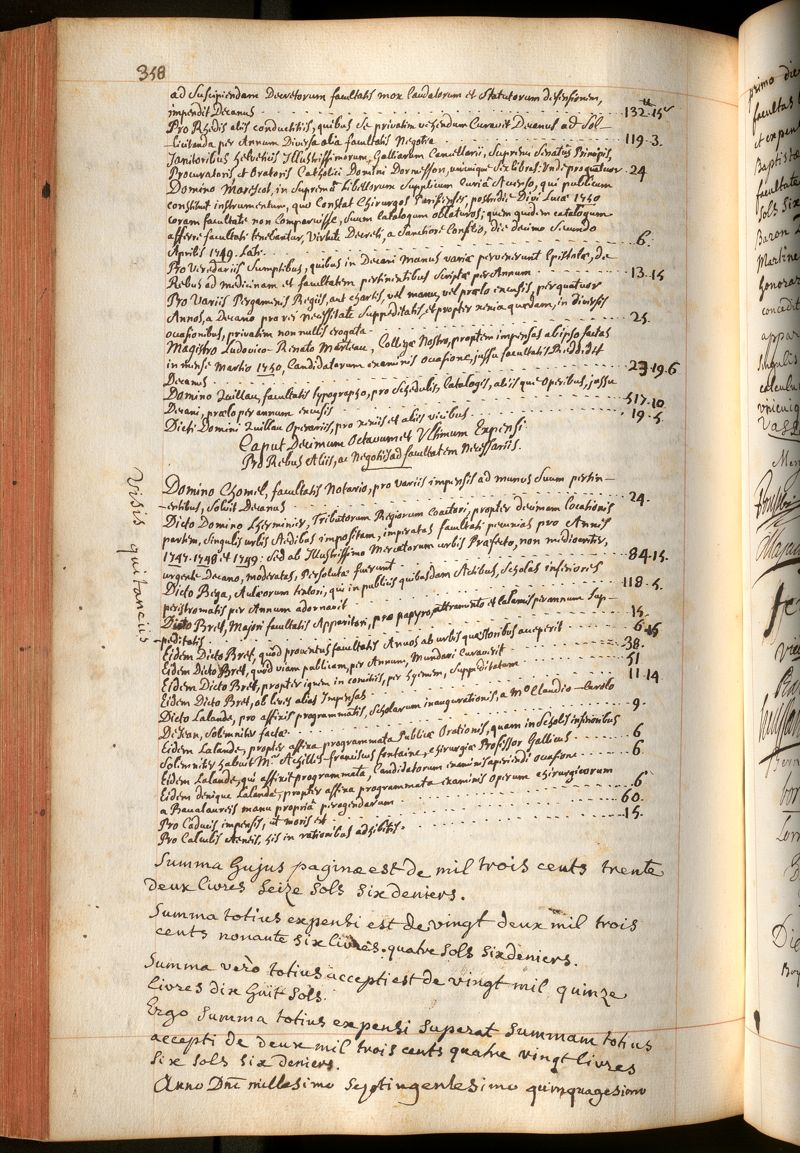 358
ad Suscipiendam Decretorum facultatis mox laudatorum et Statutorum defensionem,
impendit Decanus 132 15
Pro Rhedis aliis conductitiis, quibus Se privatim vehendum Curavit Decanus ad Sol-
licitanda per Annum Diversa alia facultatis Negotia 119. 3.
Janitoribus helvetiis Illustrissimorum, Galliarum Cancellarii, Supremi Senatus Principis,
Procuratoris, et Oratoris Catholici Domini Dormesson, unicuique Sex libras: Unde pro quatuor 24
Domino Marescot, in Suprema libellorum Supplicum Curia Acerso, qui publicum
constituit instrumentum, quo Constat Chirurgos Parisienses, postridie Divi Lucae 1750
coram facultate non Comparuisse, Suum Catalogum oblaturos; quem quidem catalogum
afferre facultati tenebantur, Virtute Decreti, a Sanctiore Consilio, die decimo Secundo
Aprilis 1749. Lati 6.
Pro Veredariis Sumptibus, quibus in Decani Manus variae pervenerunt Epistolae, de
Rebus ad medicinam et facultatem pertinentibus Scriptae per Annum 13. 15
Pro Variis Pergamenis Regiis, aut chartis, vel manu, vel praelo excusis, per quatuor
Annos, a Decano pro rei necessitate Suppeditatis et propter xenia quaedam, in diversis
occasionibus, privatim non nullis erogata 25.
Magistro Ludovico-Renato Marteau, Collegae Nostro, propter impensas ab ipso factas
in mense Martio 1750, Candidatorum examinis occasione, jussu facultatis Reddidit
Decanus 23. 19. 6
Domino Quillau, facultatis typographo, pro Schedulis, Catalogis, aliisque Operibus, jussu
Decani, praelo per annum excusis 517. 10
Dicti Domini Quillau Operariis, pro xeniis et aliis vicibus 19. 5.
Caput Decimum Octavum et Ultimum Expensi
Pro Rebus Aliis, ac Negotiis ad facultatem Necessariis.
Visis quitanciis
Domino Chomel, facultatis Notario, pro variis impensis ad munus Suum pertin-
-entibus, Solvit Decanus 24.
Dicto Domino Lherminier, Tributorum Regiorum coactori, propter decimam locationis
partem, Singulis urbis Aedibus impositam, imperatas facultati pecunias pro Annis
1747. 1748 et 1749: Sed ab Illustrissimo Mercatorum urbis Praefecto, non mediocriter,
urgente Decano, moderatas, Persolutae fuerunt 84. 15.
Dicto Bega, Aulaeorum textori, qui in publicis quibusdam Actibus, Scholas inferiores
peristromatis per Annum adornavit 118. 5.
Dicto Bret, Majori facultatis Apparitori, pro papyro, attramento et calamis per annum Sup-
-peditatis 15.
Eidem Dicto Bret, quod proventus facultatis Annuos ab urbis quaestoribus acceperit 6 15
Eidem Dicto Bret, quod viam publicam, per Annum, Mundari Curaverit 38.
Eidem Dicto Bret, propter ignem in comitiis, per hyemem, Suppeditatum 51
Eidem Dicto Bret, ob leves alias Impensas 11 14
Dicto Lalande, pro affixis programmatis, Scholarum inaugurationis, a Mo Claudio-Carolo
Dejean, Solemniter factae 9.
Eidem Lalande, propter affixa programmata Publicae Orationis, quam in Scholis inferioribus
Solemniter habuit Mr Achilles-franciscus fontaine, chirurgiae Professor Gallicus 6
Eidem Lalande, qui affixit programmata, Candidatorum examinis aperiendi occasione 6
Eidem denique Lalande, propter affixa programmata examinis operum chirurgicorum
a Baccalaureis manu propria peragendorum 6
Pro Caducis impensis, ut moris est 60.
Pro Calculis Aeneis, his in rationibus adhibitis. 15.
Summa hujus paginae est de mil trois cents trente
deux livres Seize Sols Six deniers.
Summa totius expensi est de vingt deux mil trois
cents nonante six livres quatre Sols Six deniers.
Summa vero totius accepti est de vingt mil quinze
livres dix huit Sols.
Ergo Summa totius expensi Superat Summam totius
accepti de deux mil trois cents quatre vingt livres
Six Sols Six deniers.
Anno Dni millesimo Septingentesimo quinquagesimo